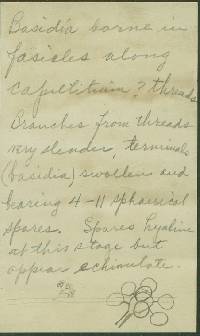 Basidia borne in
fasicles along
capillitium? threads
Branches from threads
very slender, terminals
(basidia) swollen and
bearing 4-11 sphaerical
spores. Spores hyaline
at this stage but
appear echinulate.